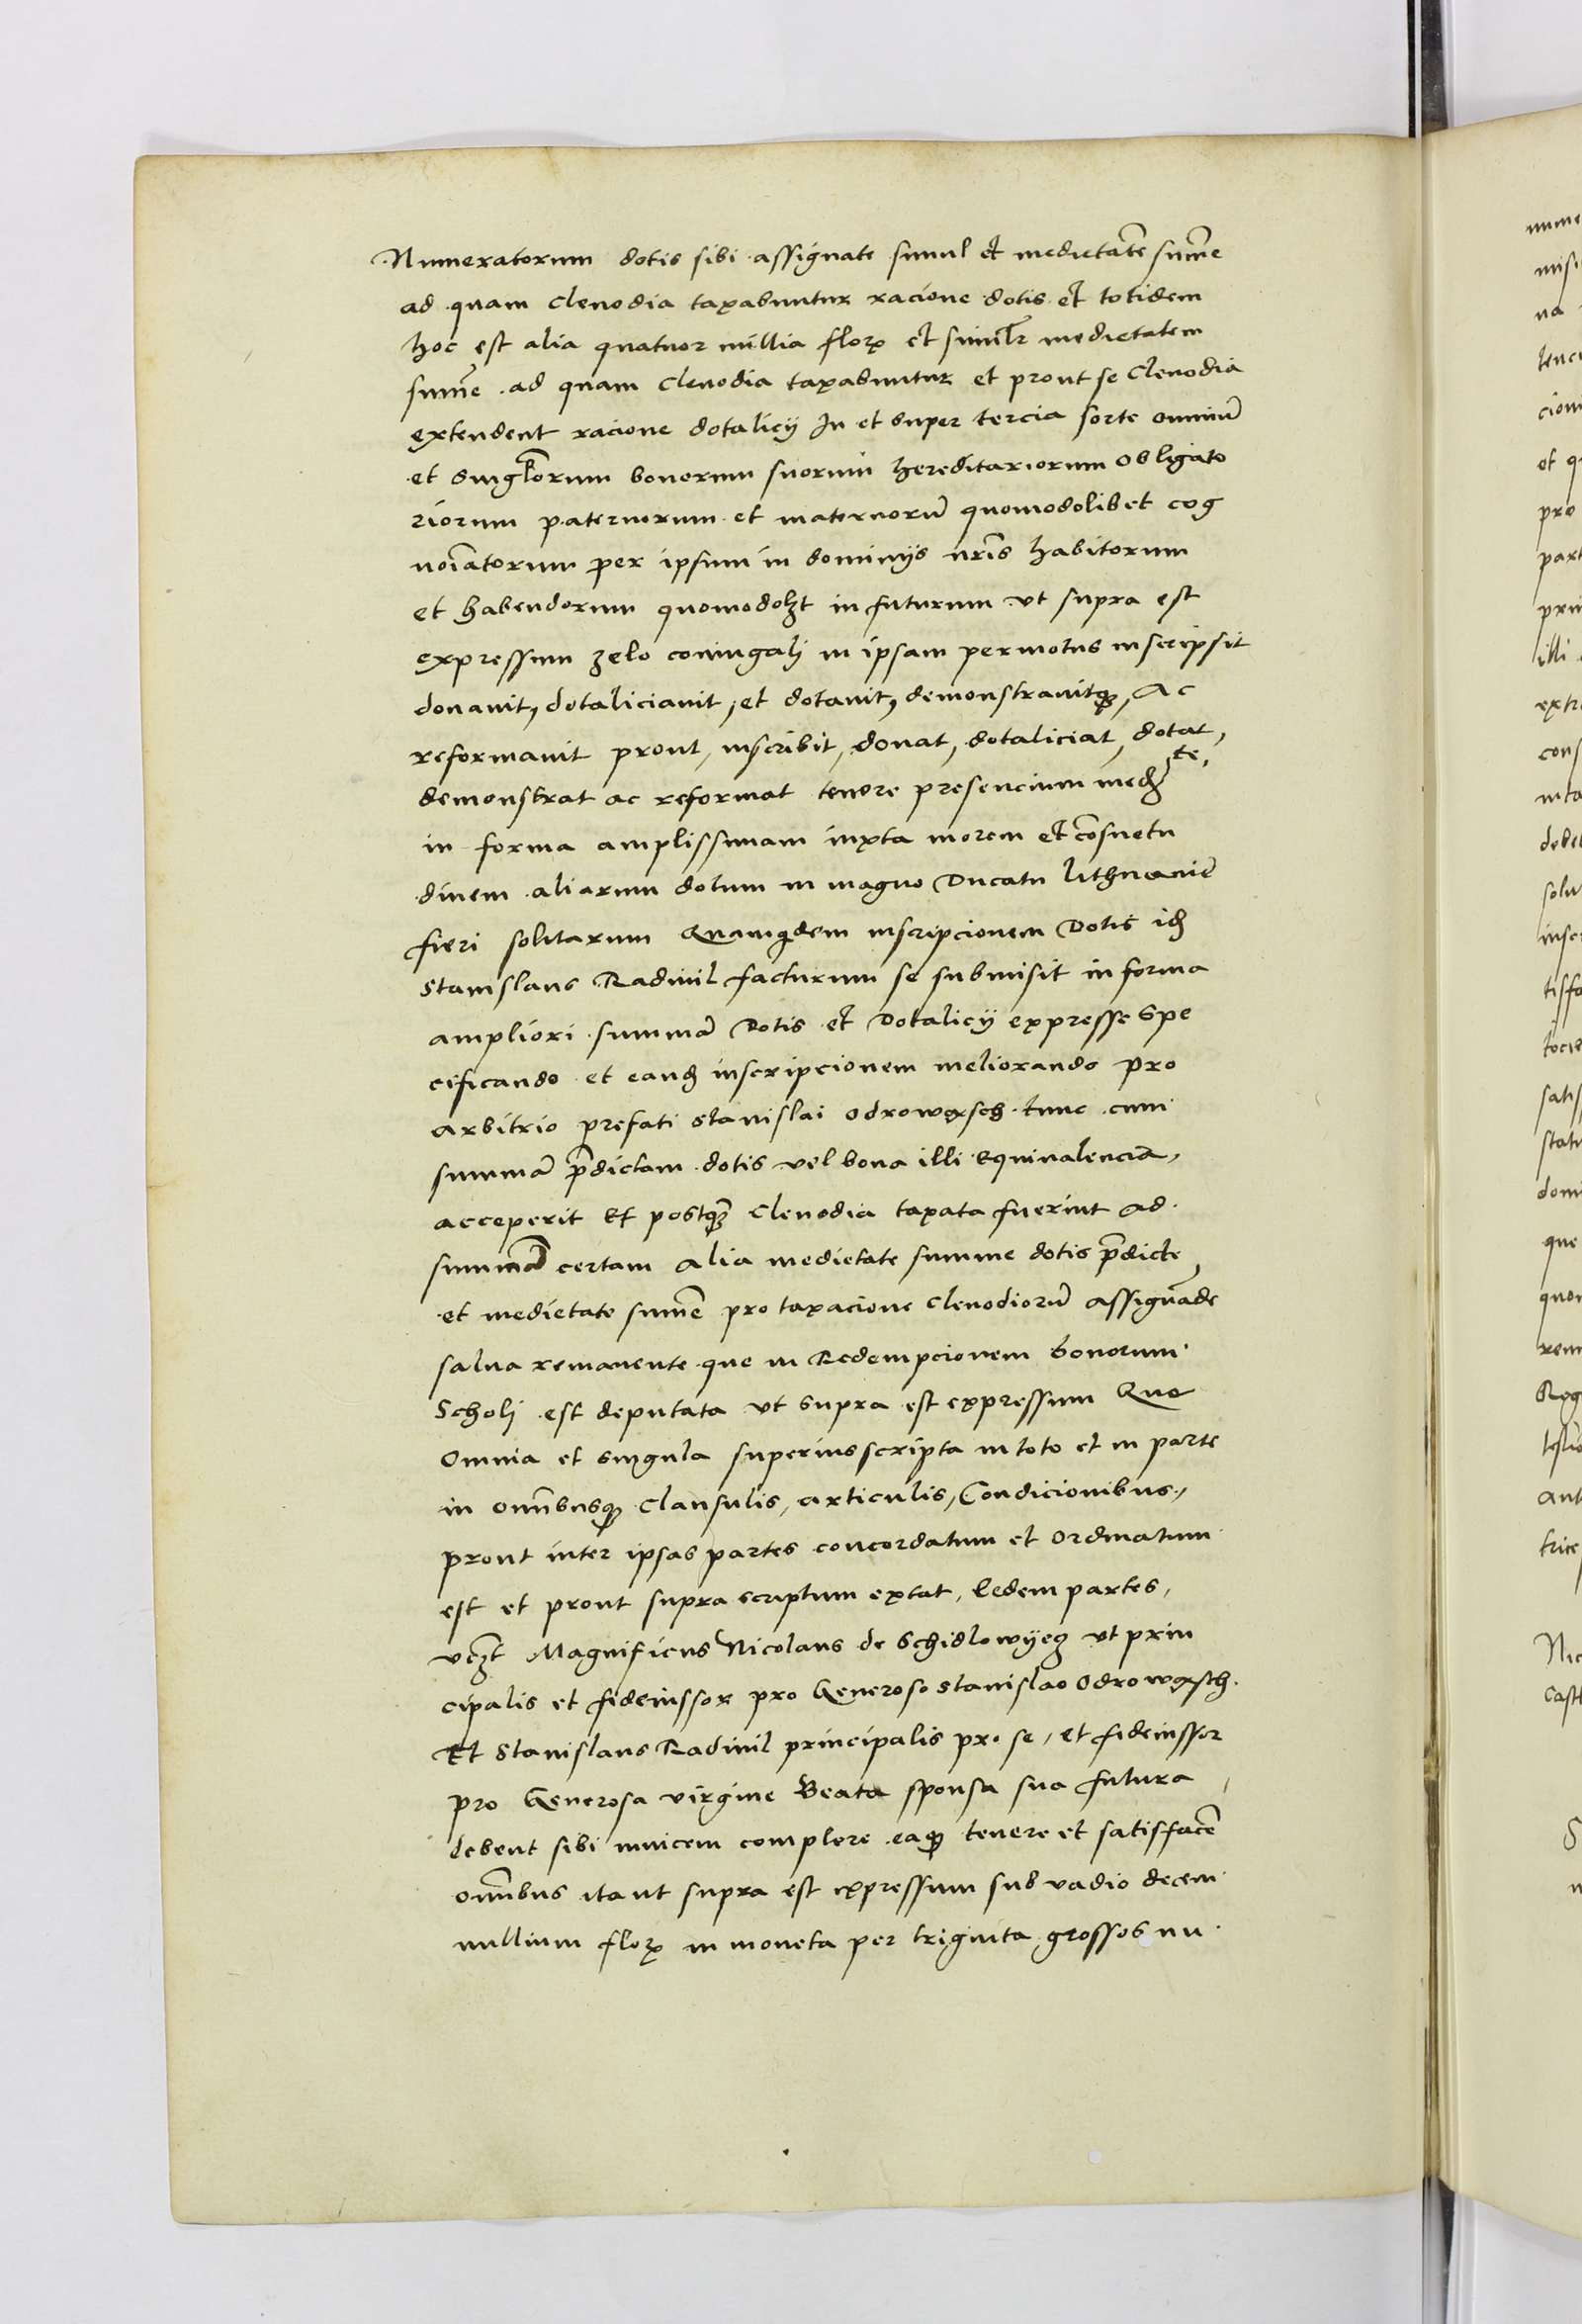 Numeratorum dotis sibi assignate simul et medietatē sum̄e
ad quam clenodia taxabuntur racione dotis et totidem
hoc est alia quatuor millia florꝝ et similr̄ medietatem
sum̄e ad quam clenodia taxabuntur et prout se clenodia
extendent racione dotalicij In et super tercia sorte omniū
et singl̄orum bonorum suorum hereditariorum obligato
riorum paternorum et maternorū quomodolibet cog
noīatorum per ipsum in dominijs nrīs habitorum
et habendorum quomodolꝫt in futurum vt supra est
expressum zelo coniugalj in ipsam permotus inscripsit
donauit, dotaliciauit, et dotauit, demonstrauitqꝫ, Ac
reformauit prout, inscribit, donat, dotaliciat, dotat,
demonstrat ac reformat tenore presencium medꝫte,
in forma amplissimam iuxta morem et cōsuetu
dinem aliarum dotum in magno Ducatu lithuaniē
fieri solitarum Quamqͥdem inscripcionem Dotis idꝫ
Stanislaus Radiuil facturum se submisit in forma
ampliori summā Dotis et Dotalicij expresse Spe
cificando et eandꝫ inscripcionem meliorando pro
arbitrio prefati Stanislai Odrowąsch tunc cum
summā p̄dictam dotis vel bona illi equiualencia,
acceperit Et postqꝫ clenodia taxata fuerint ad
summā certam alia medietate summe dotis p̄dicte,
et medietate sum̄e pro taxacione clenodiorū assignāde
salua remanente que in Redempcionem bonorum
Scholj est deputata vt supra est expressum Que
Omnia et singula superius scripta in toto et in parte
in omībusqꝫ clausulis, articulis, Condicionibus,
prout inter ipsas partes concordatum et ordinatum
est et prout supra scriptum extat, Eedem partes,
vcꝫt Magnificus Nicolaus de Schidlowijecz vt prin
cipalis et fideiussor pro Generoso Stanislao Odrowąsch
Et Stanislaus Radiuil principalis pro se, et fideiussor
pro Generosa virgine Beata sponsa sua futura,
debent sibi inuicem complere eaqꝫ tenere et satisfacē
omībus ita ut supra est expressum sub vadio decem
millium florꝝ in moneta per triginta grossos nu